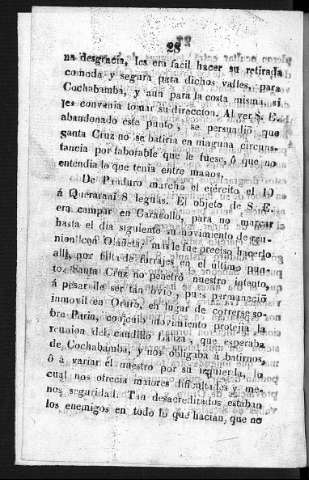 28
na desgracia, les era facil hacer su retirada
comoda y segura para dichos valles, para
Cochabamba, y aun para la costa misma, si
les convenia tomar su direccion. Al ver S. E.
abandonado este punto, se persuadió, que
Santa Cruz no se batiria en maguna circuns-
tancia por faborable que le fuese, ó que no
entendia lo que tenia entre manos.
De Panduro marchó el ejército el 10
á Querarani 8 leguas. El objeto de S. E.
era campar en Caracollo, para no marcar
hasta el dia siguiente su movimiento de reu-
nion con Olañeta; mas le fue preciso hacerlo
alli, por falta de forrajes en el último pun-
to. Santa Cruz no penetró nuestro intento,
á pesar de ser tan obvio, pues permaneció
inmovil en Oruro, en lugar de correrse so-
bre Paria, con cuyo movimiento protejia la
reunion del caudillo Lanza, que esperaba
de Cochabamba, y nos obligaba á batirnos,
ó á variar el nuestro por su izquierda, lo
cual nos ofrecia maiores dificultades y me-
nos seguridad. Tan desacreditados estaban
los enemigos en todo lo que hacian, que no